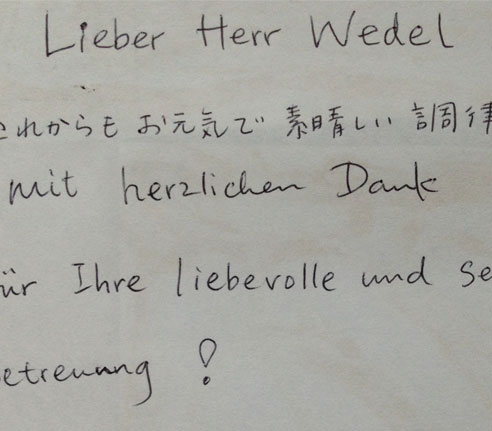 Lieber Herr Wedel
これからも お元気で 素晴しい 調律
mit herzlichen Dank
für Ihre liebevolle und
Betreuung !